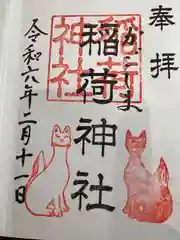 奉拝
かごしま
稲荷神社
稲荷神社
令和六年二月十一日